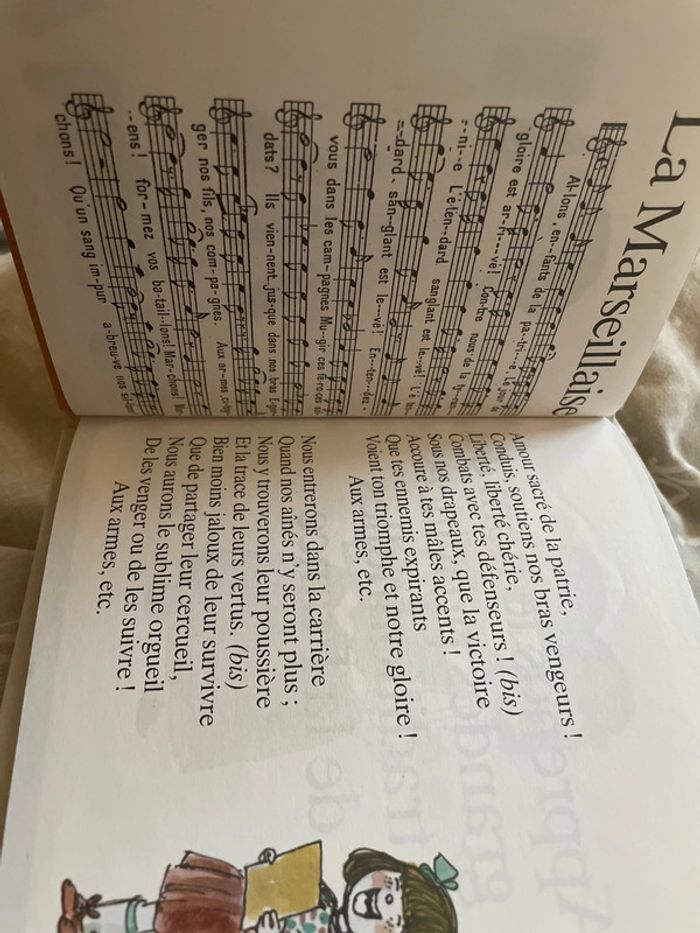 La Marseillaise
Al-lons, en--fants de la pa--tri---e, Le jour de
gloire est ar-ri---vé! Con-tre nous de la ty-ran-
--ni--e L'é-ten--dard sanglant est le--vé! L'é ten-
=-dard- san-glant est le---vé! En---ten--des-
vous dans les cam-pagnes Mu-gir ces fé-ro-ces sol-
dats? Ils vien-nent jus-que dans nos bras É-gor-
ger nos fils, nos com-pa-gnes. Aux ar-mes, ci-toy-
--ens! for-mez vos ba-tail--lons! Mar-chons! Mar-
chons! Qu'un sang im-pur a-breu-ve nos sil-lons!
Amour sacré de la patrie,
Conduis, soutiens nos bras vengeurs !
Liberté, liberté chérie,
Combats avec tes défenseurs ! (bis)
Sous nos drapeaux, que la victoire
Accoure à tes mâles accents !
Que tes ennemis expirants
Voient ton triomphe et notre gloire !
Aux armes, etc.
Nous entrerons dans la carrière
Quand nos aînés n'y seront plus ;
Nous y trouverons leur poussière
Et la trace de leurs vertus. (bis)
Bien moins jaloux de leur survivre
Que de partager leur cercueil,
Nous aurons le sublime orgueil
De les venger ou de les suivre !
Aux armes, etc.